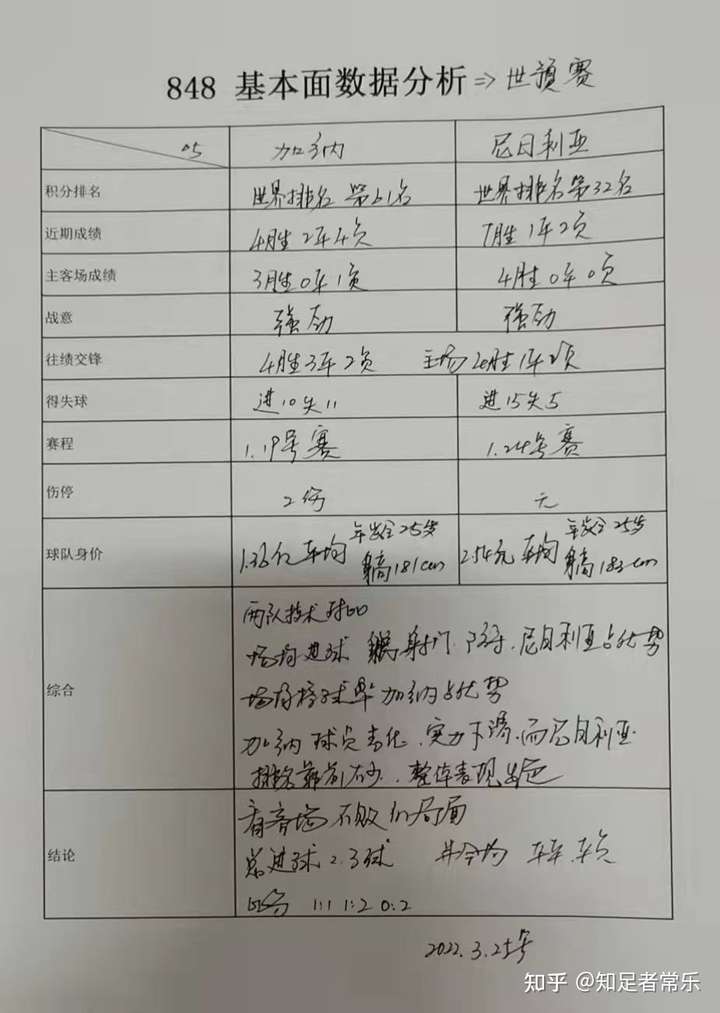 848 基本面数据分析 ⇒ 世预赛
05 加纳 尼日利亚
积分排名 世界排名 第61名 世界排名第32名
近期成绩 4胜2平4负 7胜1平2负
主客场成绩 3胜0平1负 4胜0平0负
战意 强劲 强劲
往绩交锋 4胜3平2负 主场
得失球 进10失11 进15失5
赛程 1.19号赛 1.24号赛
伤停 2伤 无
球队身价 1.36亿 平均 年龄25岁 身高181cm 2.54亿 平均 年龄25岁 身高183cm
两队技术对比
场均进球 射门 尼日利亚占优势
综合 场均控球率 加纳占优势
加纳 球员老化、实力下滑、而尼日利亚
排名靠前 整体表现出色
看客场不败的局面
结论 总进球 2.3球 半全场 平平.平负
比分 1:1 1:2 0:2
2022.3.25号
知乎 @知足者常乐